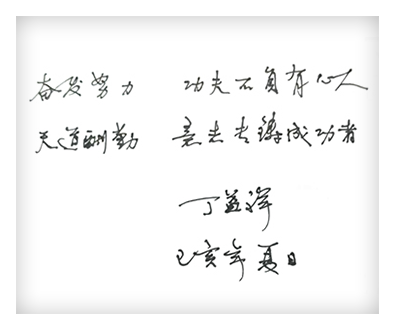 奋发努力 功夫不负有心人
天道酬勤 成功者
丁益祥
己亥年夏日